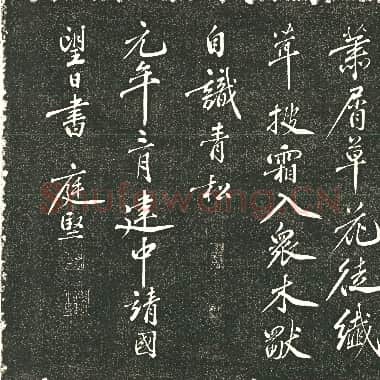 屑草花徒纖
茸霜入衆木獸
自識青松
元年月建中靖國
望日書 庭堅
Shufawang.CN